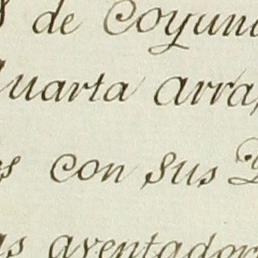 de Coyun
Quarta arra
con sus
aventador